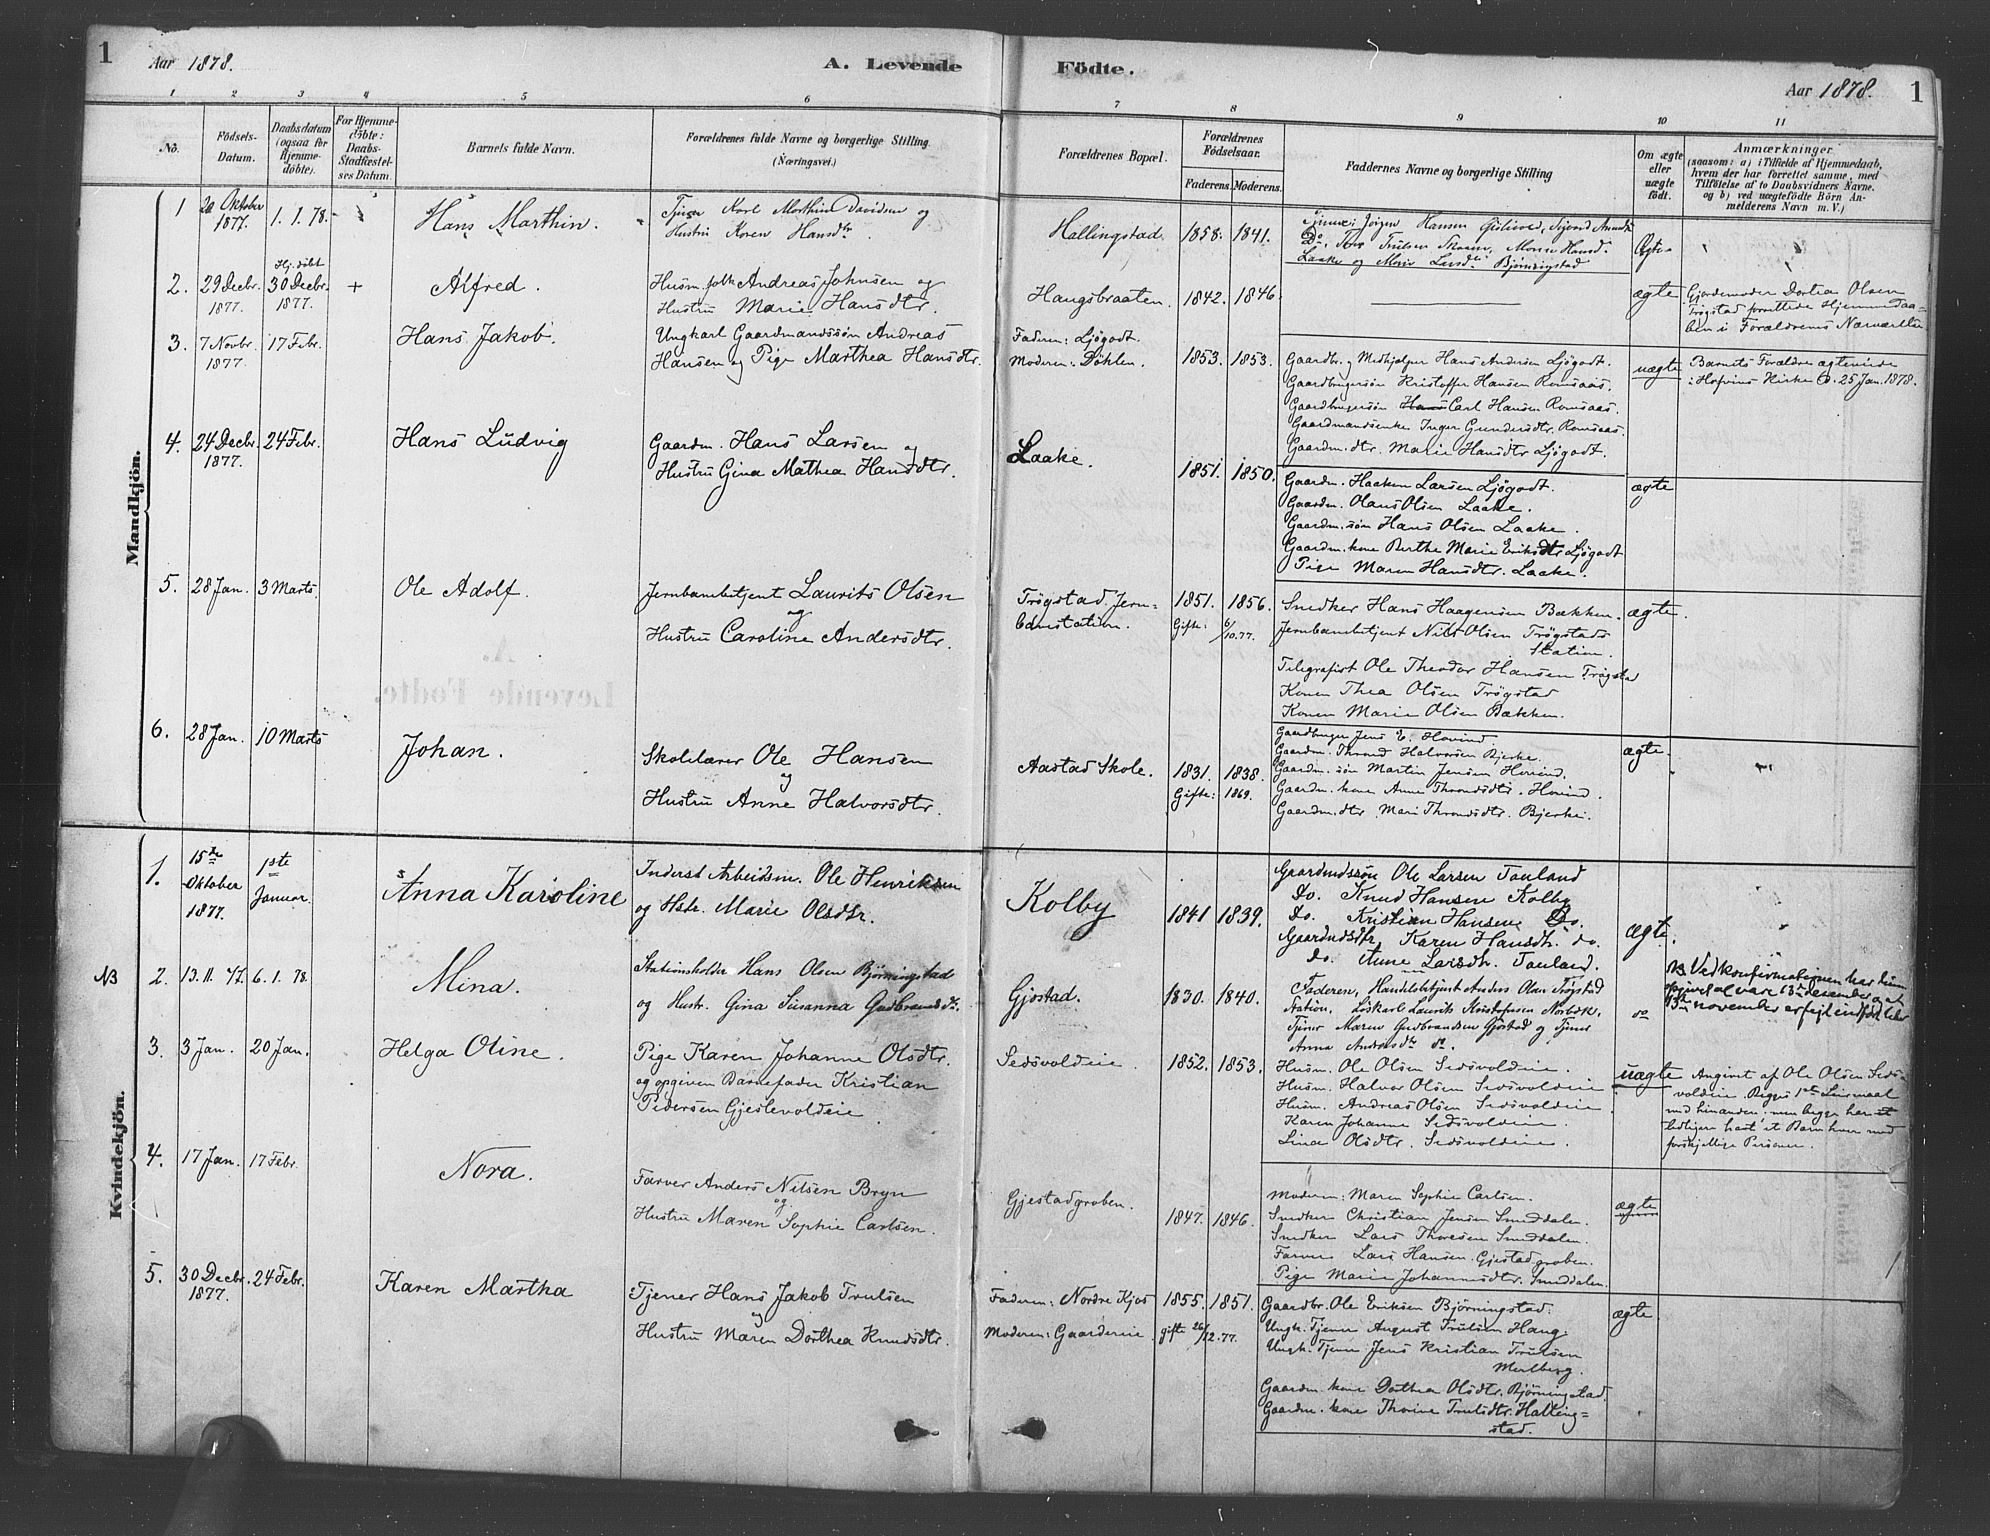 1 Aar 1878. A. Levende Födte. Aar 1878. 1
1 2 3 4 5 6 7 8 9 10 11
No.
Födsels-Datum.
Daabsdatum (ogsaa for Hjemmedöbte).
For Hjemmedöbte: Daabs-Stadfæstelses Datum.
Barnets fulde Navn.
Forældrenes fulde Navne og borgerlige Stilling (Næringsvei.)
Forældrenes Bopæl.
Forældrenes Födselsaar.
Faderens. Moderens.
Faddernes Navne og borgerlige Stilling
Om ægte eller uægte födt.
Anmærkninger
(saasom: a) i Tilfælde af Hjemmedaab, hvem der har forrettet samme, med Tilföielse af to Daabsvidners Navne, og b) ved uægtefödte Börn Anmelderens Navn m. V.)
Mandkjön.
1 20 Oktober 1877. 1. 1. 78. Hans Marthin.
Karl Marthin Davidsen og
Hustru Karen Hansdtr.
Hallingstad 1858. 1841.
Jørgen Hansen
Laake og Marie Larsdtr Bjørningstad
Ægte
2. 29 Decbr. 1877. Hj. døbt 30 Decbr. 1877. + Alfred.
Husm. folk Andreas Johnsen og
Hustru Marie Hansdtr.
Haugsbraaten. 1842. 1846.
ægte
Gjordemoder Dortea Olsen
Trøgstad forrettede Hjemmedaaben i Forældrenes Nærværelse
3. 7 Novbr. 1877. 17 Febr. Hans Jakob.
Ungkarl Gaardmandssøn Andreas
Hansen og Pige Marthea Hansdtr.
Faderen: Ljøgodt.
Moderen: Døhlen. 1853. 1853.
Gaardbr. og Medhjelper Hans Andersen Ljøgodt.
Gaardbrugersøn Kristoffer Hansen Romsaas.
Gaardbrugersøn Hans Carl Hansen Romsaas.
Gaardmandsenke Inger Gundersdtr. Romsaas.
Gaardm. dtr. Marie Hansdtr Ljøgodt.
uægte
Barnets Forældre ægteviede
i Hofvins Kirke d. 25 Jan. 1878.
4. 24 Decbr. 1877. 24 Febr. Hans Ludvig
Gaardm. Hans Larsen og
Hustru Gina Mathea Hansdtr.
Laake. 1851. 1850.
Gaardm. Haaken Larsen Ljøgodt.
Gaardm. Olaus Olsen Laake.
Gaardm. søn Hans Olsen Laake.
Gaardm. kone Berthe Marie Eriksdtr. Ljøgodt
Pige Maren Hansdtr. Laake.
ægte
5. 28 Jan. 3 Marts. Ole Adolf.
Jernbanebetjent Laurits Olsen
og
Hustru Caroline Andersdtr.
Trøgstad Jern=
banestation. 1851. 1856.
Gifte: 6/10.77.
Snedker Hans Haagensen Bækken.
Jernbanebetjent Nils Olsen Trøgstads
Station.
Telegrafist Ole Theodor Hansen Trøgstad
Konen Thea Olsen Trøgstad
Konen Marie Olsen Bækken.
ægte.
6. 28 Jan. 10 Marts Johan.
Skolelærer Ole Hansen
og
Hustru Anne Halvorsdtr.
Aastad Skole. 1831. 1838.
Gifte: 1869.
Gaardbruger Jens E. Hovind.
Gaardm. Thrond Halvorsen Bjerke.
Gaardm. søn Martin Jensen Hovind.
Gaardm. kone Anne Throndsdtr. Hovind.
Gaardm. dtr. Mari Throndsdtr. Bjerke.
ægte.
Kvindekjön.
1. 15de Oktober 1877. 1ste Januar. Anna Karoline
Inderst Arbeidsm. Ole Henriksen
og Hstr. Marie Olsdtr.
Kolby 1841 1839.
Gaardmdssøn Ole Larsen Tauland
Do. Knud Hansen Kolby
Do. Kristian Hansen Do.
Gaardmdsdtr. Karen Hansdtr. do.
do. Anne Larsdtr. Tauland.
ægte.
NB 2. 13. 11. 77. 6. 1. 78. Mina.
Stationsholder Hans Olsen Bjørningstad
og Hustr. Gina Susanna Gudbrandsdtr.
Gjøstad. 1830. 1840.
Faderen, Handelsbetjent Anders Olsen Trøgstad
Station, Løskarl Laurits Kristofersen Norbæk,
Tjener Maren Gudbrandsen Gjøstad og Tjener
Anna Andersdtr do.
do
NB Ved konfirmationen har hun
opgivet at var 13de desember og at
13de november er fejl indført her
3. 3 Jan. 20 Jan. Helga Oline.
Pige Karen Johanne Olsdtr.
og opgiven Barnefader Kristian
Pedersen Gjeslevoldeie
Sedsvoldeie. 1852. 1853.
Husm. Ole Olsen Sedsvoldeie.
Husm. Halvor Olsen Sedsvoldeie
Husm. Andreas Olsen Sedsvoldeie
Karen Johanne Sedsvoldeie.
Lina Olsdtr. Sedsvoldeie.
uægte
Angivet af Ole Olsen Seds=
voldeie. Begges 1ste Leiermaal
med hinanden, men begge har et
tidligere havt et Barn hver med
forskjellige Personer.
4. 17 Jan. 17 Febr. Nora.
Farver Anders Nilsen Bryn
og
Hustru Maren Sophie Carlsen.
Gjestadgroben. 1847. 1846.
Moderen: Maren Sophie Carlsen.
Snedker Christian Jensen Smeddalen.
Snedker Lars Thoresen Smeddalen.
Farver Lars Hansen Gjestadgroben.
Pige Marie Johannesdtr. Smeddalen.
ægte
5. 30 Decbr. 1877. 24 Febr. Karen Martha
Tjener Hans Jakob Trulsen
og
Hustru Maren Dorthea Knudsdtr.
Faderen: Nordre Kjos 1855. 1851.
Moderen: Gaardereie. gifte 26/12.77.
Gaardbr. Ole Eriksen Bjørningstad.
Ungk. Tjener August Trulsen Haug.
Ungk. Tjener Jens Kristian Trulsen
Melberg.
Gaardm. kone Dorthea Olsdtr. Bjørningstad.
Gaardm. kone Thorine Trulsdtr. Halling=
stad.
ægte